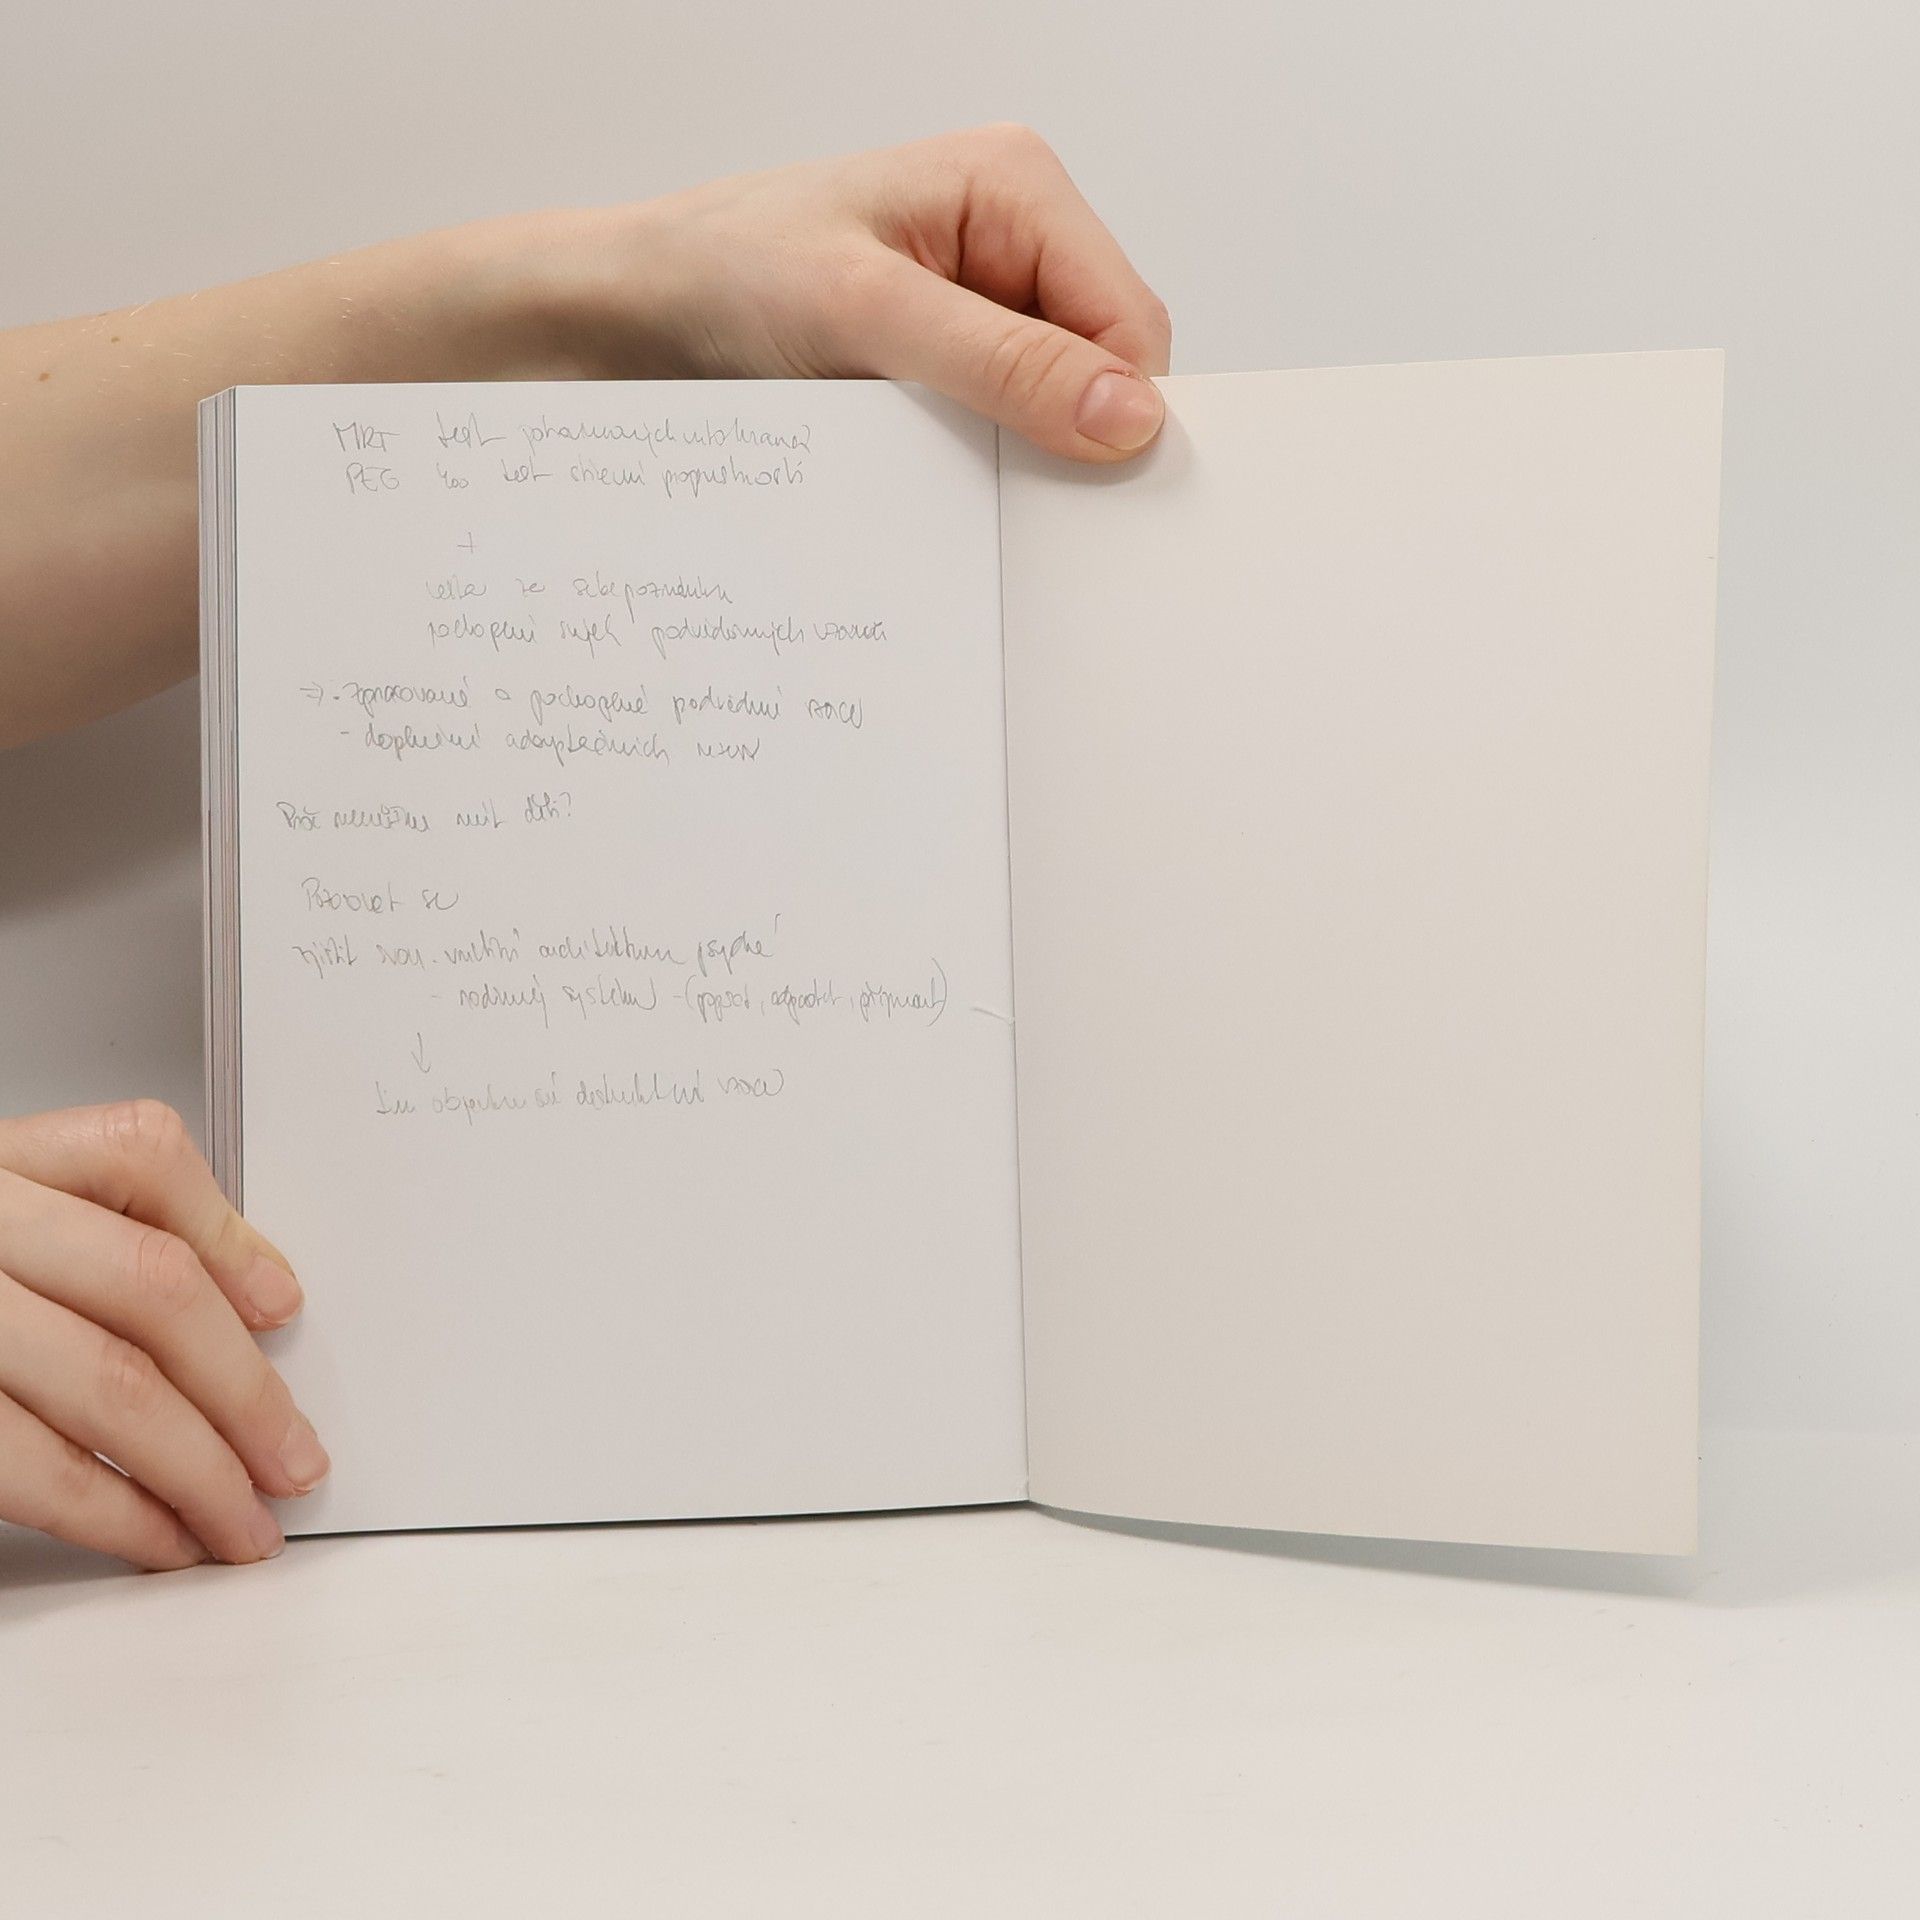 MRT test potravinových intolerancí
PEG 400 test střevní propustnosti
+
cesta ze sebepoznání
pochopení svých podvědomých vzorců
=> - zpracované a pochopené podvědomé vzorce
- doplnění adaptačních
Proč nemůžeme mít děti?
Pozorovat se
zjistit svou vnitřní architekturu psyché
- rodinný systém - (poprat, odpustit, přijmout)
↓
tím objevíme své destruktivní vzorce